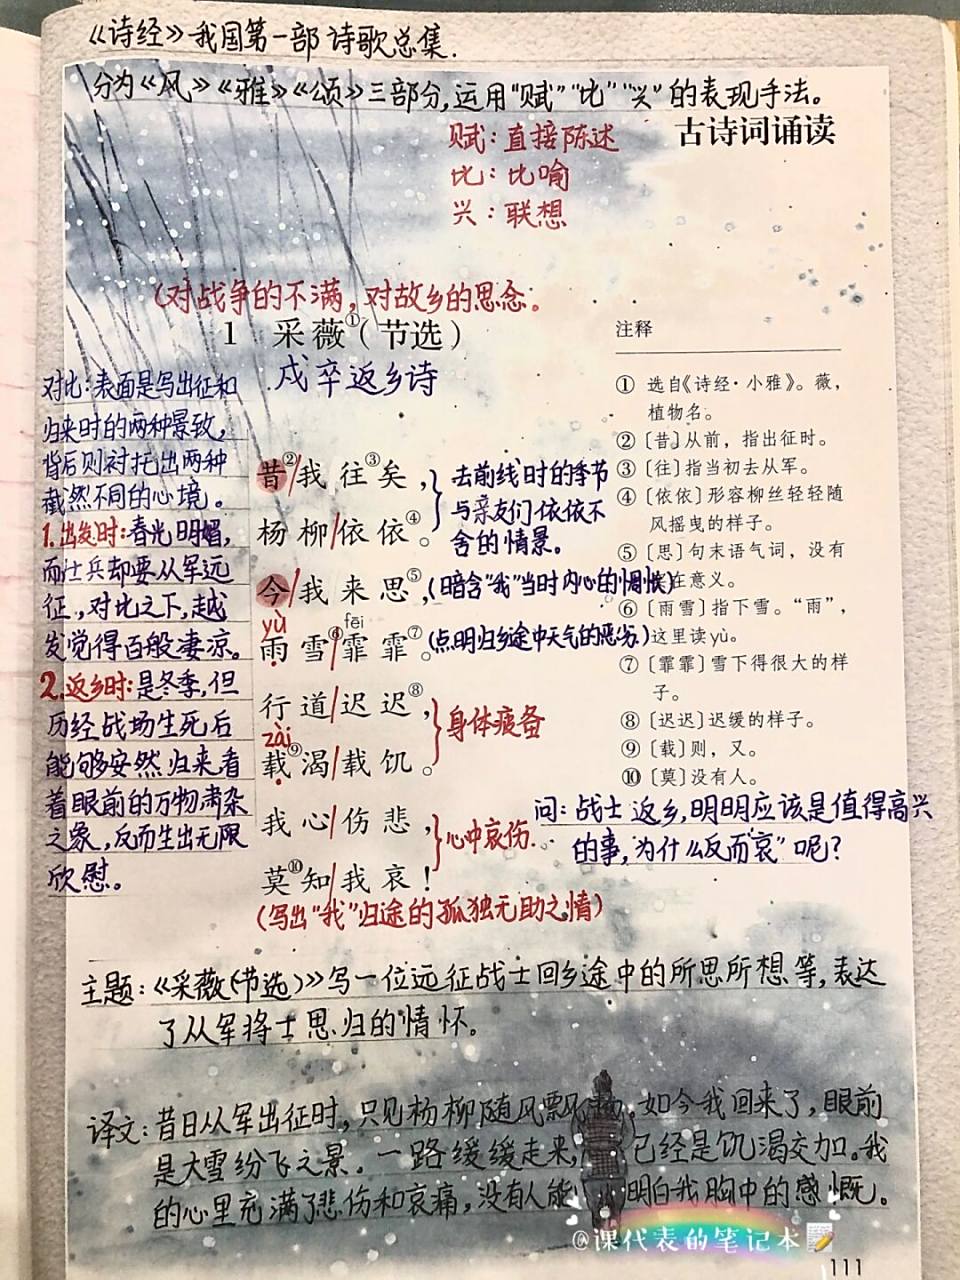 《诗经》我国第一部诗歌总集.
分为《风》《雅》《颂》三部分,运用"赋""比""兴"的表现手法。
赋:直接陈述
比:比喻
兴:联想
古诗词诵读
(对战争的不满,对故乡的思念。
1 采薇①(节选)
戍卒返乡诗
对比:表面是写出征和
归来时的两种景致,
背后则衬托出两种
截然不同的心境。
1.出发时:春光明媚,
而士兵却要从军远
征,对比之下,越
发觉得百般凄凉。
2.返乡时:是冬季,但
历经战场生死后
能够安然归来看
着眼前的万物肃杂
之象,反而生出无限
欣慰。
昔②/我往③矣,
杨柳/依依④。
去前线时的季节
与亲友们依依不
舍的情景。
今/我来思⑤,(暗含"我"当时内心的惆怅)
yù
fēi
雨雪⑥/霏霏⑦。(点明归乡途中天气的恶劣.)
行道/迟迟⑧,
zài
载⑨渴/载饥。
身体疲备
我心/伤悲,
莫⑩知/我哀!
心中哀伤.
(写出"我"归途的孤独无助之情)
注释
① 选自《诗经·小雅》。薇,
植物名。
②〔昔〕从前,指出征时。
③〔往〕指当初去从军。
④〔依依〕形容柳丝轻轻随
风摇曳的样子。
⑤〔思〕句末语气词,没有
在意义。
⑥〔雨雪〕指下雪。“雨”,
这里读yù。
⑦〔霏霏〕雪下得很大的样
子。
⑧〔迟迟〕迟缓的样子。
⑨〔载〕则,又。
⑩〔莫〕没有人。
问:战士返乡,明明应该是值得高兴
的事,为什么反而哀"呢?
主题:《采薇(节选)》写一位远征战士回乡途中的所思所想等,表达
了从军将士思归的情怀。
译文:昔日从军出征时,只见杨柳随风飘动,如今我回来了,眼前
是大雪纷飞之景。一路缓缓走来,已经是饥渴交加。我
的心里充满了悲伤和哀痛,没有人能明白我胸中的感慨。
@课代表的笔记本
111